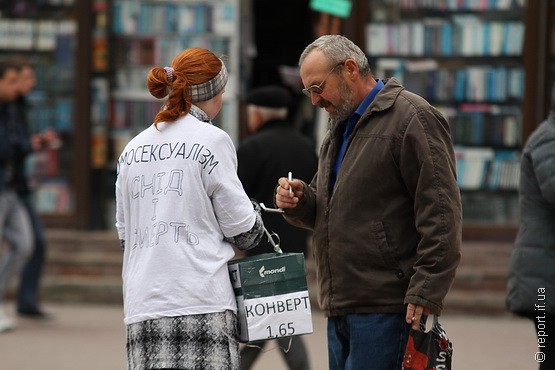 ОМОСЕКСУАЛІЗМ
СНІД
І
СМЕРТЬ
mondi
КОНВЕРТ
1,65
© report.if.ua